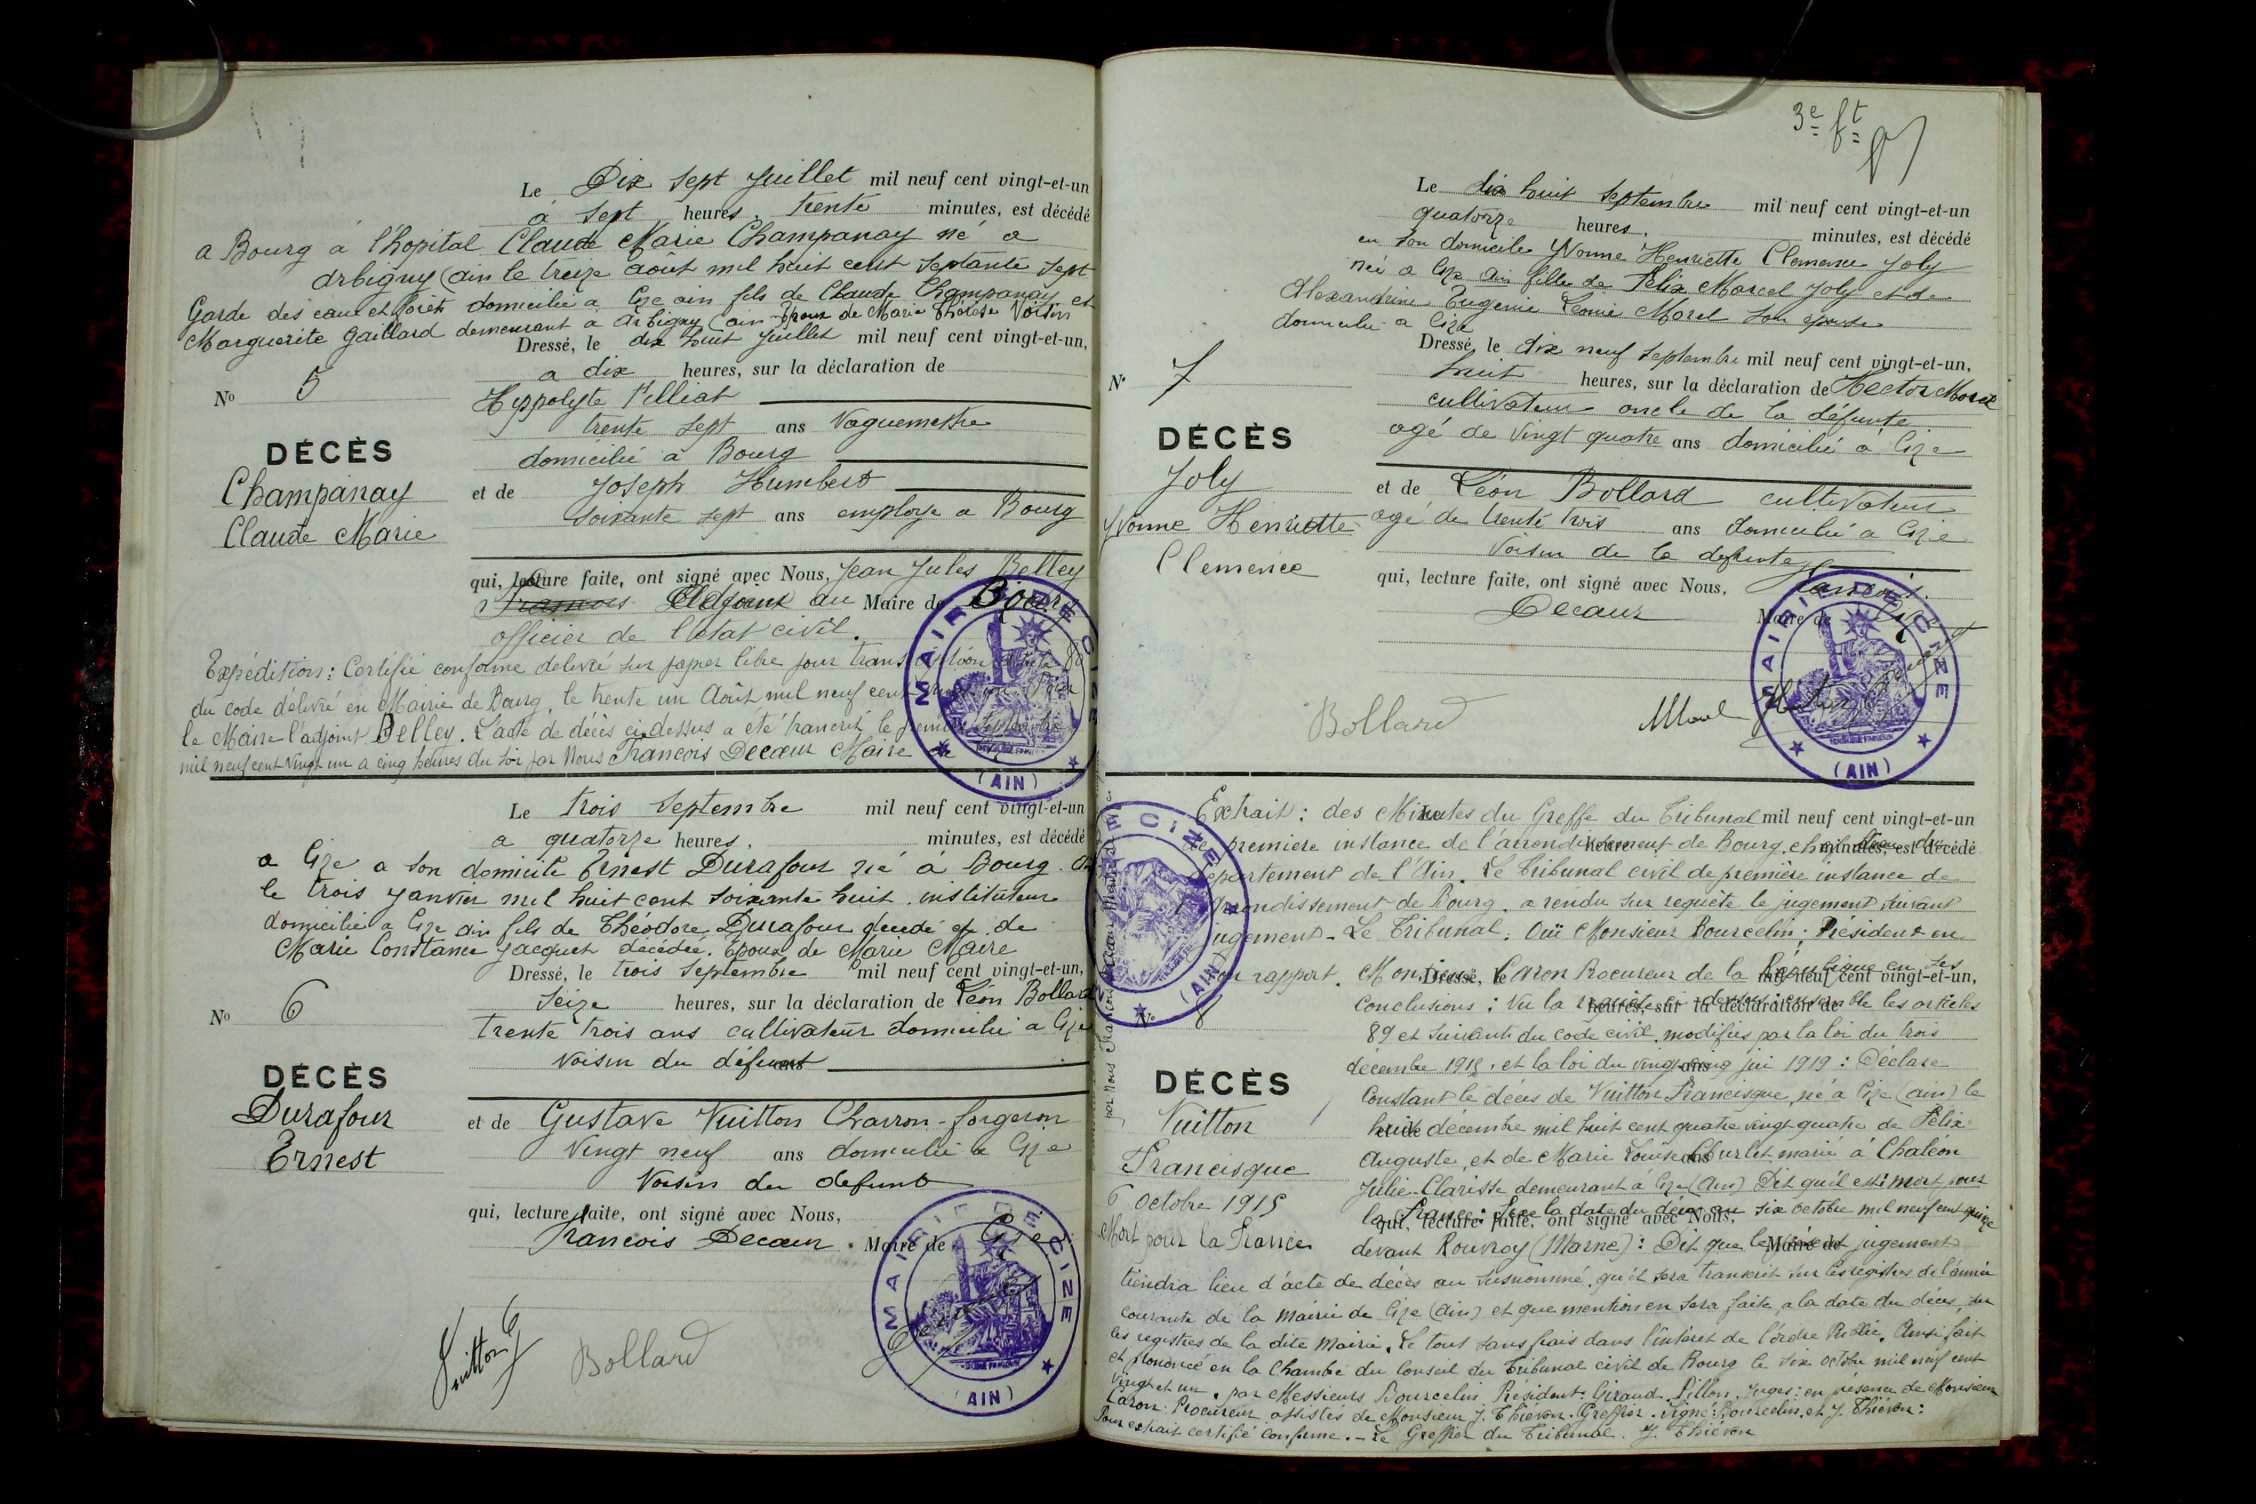 Le Dix sept Juillet mil neuf cent vingt-et-un
à sept heures, trente minutes, est décédé
a Bourg à l'hopital Claude Marie Champanay né a
Arbigny (ain le treize août mil huit cent septante sept
Garde des eaux et forêts domicilié a Cize ain fils de Claude Champanay et
Marguerite Gaillard demeurant a Arbigny (ain Epoux de Marie Thérèse Voisin
Dressé, le dix huit Juillet mil neuf cent vingt-et-un,
a dix heures, sur la déclaration de
No 5
Hyppolyte Pelliat
trente sept ans Vaguemestre
domicilié a Bourg
DÉCÈS
Champanay
Claude Marie
et de Joseph Humbert
soixante sept ans employe a Bourg
qui, lecture faite, ont signé avec Nous, Jean Jules Belley
Adjoint au Maire de Bourg
officier de l'état civil.
Expédition: Certifié conforme delivré sur papier libre pour
du code délivré en Mairie de Bourg, le trente un Août mil neuf cent
le Maire l'adjoint Belley. L'acte de décès ci dessus a été transcrit le premier Septembre
mil neuf cent vingt un a cinq heures du soir par Nous Francois Decœur Maire
MAIRIE DE CIZE
(AIN)
Le trois Septembre mil neuf cent vingt-et-un
a quatorze heures, minutes, est décédé
a Cize a son domicile Ernest Durafour né à Bourg
le trois Janvier mil huit cent soixante huit instituteur
domicilié a Cize ain fils de Théodore Durafour décédé et de
Marie Constance Jacquet décédée. Epoux de Marie Maire
Dressé, le trois Septembre mil neuf cent vingt-et-un,
Seize heures, sur la déclaration de Léon Bollard
No 6
trente trois ans cultivateur domicilié a Cize
voisin du défunt
DÉCÈS
Durafour
Ernest
et de Gustave Vuitton Charron-forgeron
Vingt neuf ans domicilié a Cize
Voisin du defunt
qui, lecture faite, ont signé avec Nous,
Francois Decœur Maire de Cize
MAIRIE DE CIZE
(AIN)
Vuitton G
Bollard
3e ft
Le dix huit Septembre mil neuf cent vingt-et-un
quatorze heures, minutes, est décédé
en son domicile Yvonne Henriette Clemence Joly
née a Cize ain fille de Félix Marcel Joly et de
Alexandrine Eugenie Leonie Morel son epouse
domicilié a Cize
Dressé, le dix neuf Septembre mil neuf cent vingt-et-un,
huit heures, sur la déclaration de Hector Morel
No 7
cultivateur oncle de la défunte
agé de vingt quatre ans domicilié à Cize
DÉCÈS
Joly
Yvonne Henriette
Clemence
et de Léon Bollard cultivateur
agé de trente trois ans domicilié a Cize
Voisin de la defunte
qui, lecture faite, ont signé avec Nous, Francois
Decœur Maire de Cize
MAIRIE DE CIZE
(AIN)
Bollard
Morel Hector
Extrait: des Minutes du Greffe du Tribunal mil neuf cent vingt-et-un
de premiere instance de l'arrondissement de Bourg, minutes, est décédé
département de l'Ain. Le Tribunal civil de première instance de
arrondissement de Bourg. a rendu sur requête le jugement suivant
jugement - Le Tribunal. Ouï Monsieur Bourcelin, Président en
son rapport. Monsieur Caron Procureur de la République en ses
Dressé, le mil neuf cent vingt-et-un,
conclusions: Vu la requête ci dessus: ensemble les articles
heures, sur la déclaration de
No 8
89 et suivants du code civil modifiés par la loi du trois
décembre 1915, et la loi du vingt cinq jui 1919: Déclare
DÉCÈS
Vuitton
Francisque
6 Octobre 1915
Mort pour la France
constant le décès de Vuitton Francisque, né à Cize (ain) le
huit décembre mil huit cent quatre vingt quatre de Félix
Auguste, et de Marie Louise Curlet marié à Chaléon
Julie-Clarisse demeurant à Cize (Ain) Dit qu'il est mort pour
la France: Fixe la date du décès au six octobre mil neuf cent quinze
qui, lecture faite, ont signé avec Nous,
devant Rouvroy (Marne): Dit que le présent jugement
Maire de
tiendra lieu d'acte de décès au susnommé, qu'il sera transcrit sur les registres de l'année
courante de la mairie de Cize (Ain) et que mention en sera faite, a la date du décès, sur
les registres de la dite Mairie. Le tout sans frais dans l'intérêt de l'ordre Public. Ainsi fait
et prononcé en la Chambre du Conseil du Tribunal civil de Bourg le six octobre mil neuf cent
vingt et un, par Messieurs Bourcelin Président, Giraud, Pillon, Juges: en présence de Monsieur
Caron: Procureur, assistés de Monsieur J. Thiévon. Greffier. Signé: Bourcelin, et J. Thiévon:
Pour extrait certifié conforme. - Le Greffier du Tribunal. J. Thiévon
CIZE
(AIN)